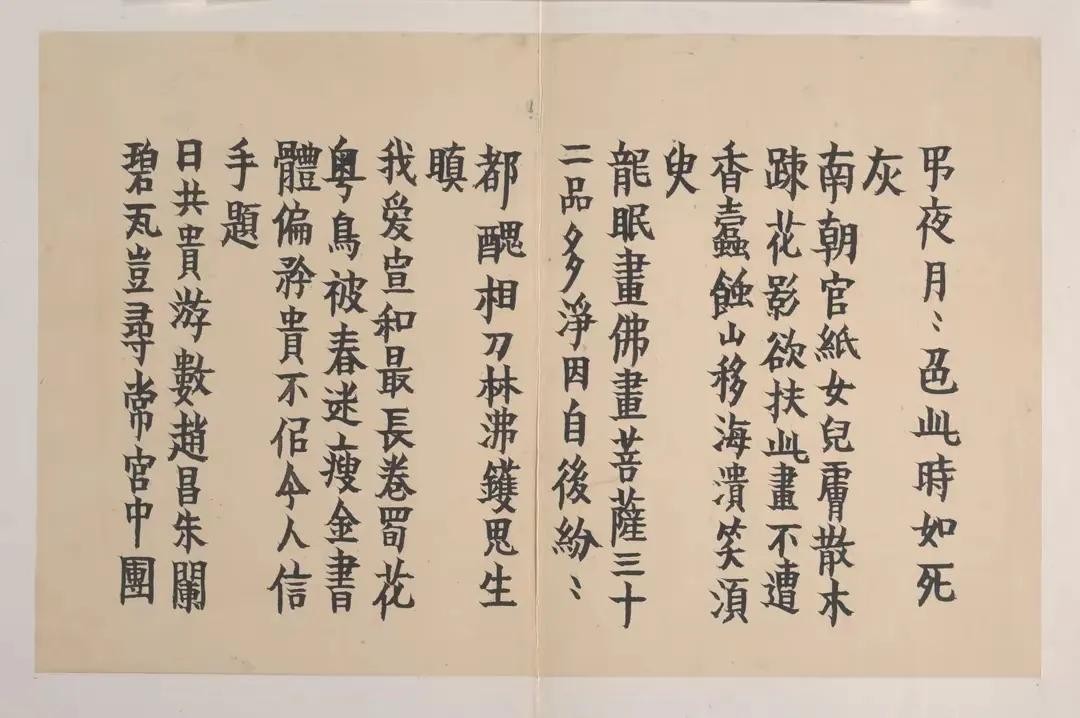 弔夜月〻色此時如死
灰
南朝官紙女兒膚散木
疎花影欲扶此畫不遭
香蠧蝕山移海潰笑須
臾
龍眠畫佛畫菩薩三十
二品多淨因自後紛〻
都醜相刀林沸鑊思生
瞋
我愛宣和最長卷蜀花
粵鳥被春迷瘦金書
體偏矜貴不假今人信
手題
日共貴游數趙昌朱闌
碧瓦豈尋常宮中團